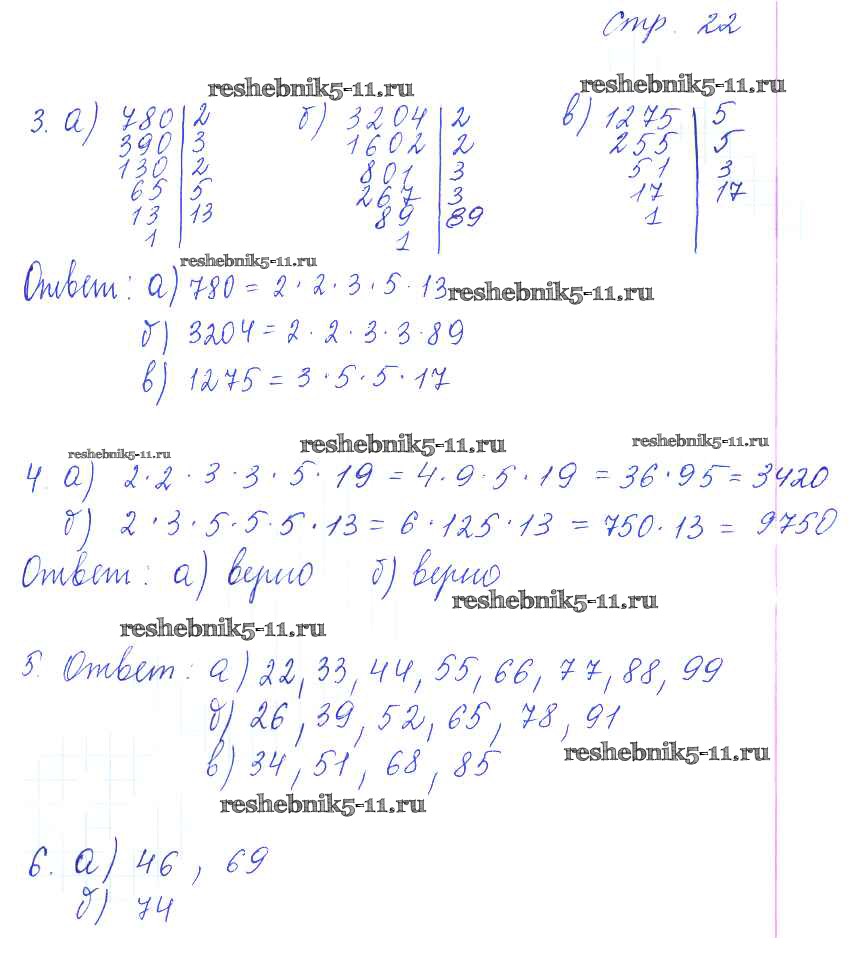 Стр. 22
reshebnik5-11.ru reshebnik5-11.ru
3. а) 780 | 2 б) 3204 | 2 в) 1275 | 5
390 | 3 1602 | 2 255 | 5
130 | 2 801 | 3 51 | 3
65 | 5 267 | 3 17 | 17
13 | 13 89 | 89 1
1 1
reshebnik5-11.ru
Ответ: а) 780 = 2 · 2 · 3 · 5 · 13 reshebnik5-11.ru
б) 3204 = 2 · 2 · 3 · 3 · 89
в) 1275 = 3 · 5 · 5 · 17
reshebnik5-11.ru reshebnik5-11.ru reshebnik5-11.ru
4. а) 2 · 2 · 3 · 3 · 5 · 19 = 4 · 9 · 5 · 19 = 36 · 95 = 3420
б) 2 · 3 · 5 · 5 · 5 · 13 = 6 · 125 · 13 = 750 · 13 = 9750
Ответ: а) верно б) верно
reshebnik5-11.ru
reshebnik5-11.ru
5. Ответ: а) 22, 33, 44, 55, 66, 77, 88, 99
б) 26, 39, 52, 65, 78, 91
в) 34, 51, 68, 85 reshebnik5-11.ru
reshebnik5-11.ru
6. а) 46, 69
б) 74